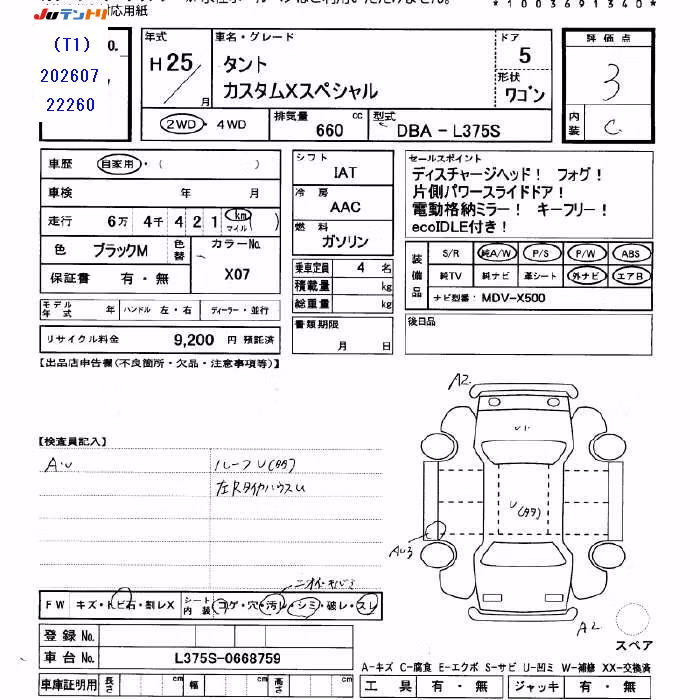 応用紙
*1003691340*
JUテントリ
(T1)
202607
22260
No.
年式
H25/
月
車名・グレード
タント
カスタムXスペシャル
ドア
5
形状
ワゴン
評価点
3
内装
C
2WD・4WD
排気量
660
cc
型式
DBA-L375S
車歴
自家用・( )
車検 年 月
走行 6万 4千 4 2 1 km マイル ( )
色 ブラックM 色替
カラーNo.
X07
保証書 有・無
モデル年式 年 ハンドル 左・右 ディーラー・並行
リサイクル料金 9,200 円 預託済
シフト
IAT
冷房
AAC
燃料
ガソリン
乗車定員 4 名
積載量 kg
総重量 kg
書類期限
月 日
セールスポイント
ディスチャージヘッド! フォグ!
片側パワースライドドア!
電動格納ミラー! キーフリー!
ecoIDLE付き!
装備品
S/R 純A/W P/S P/W ABS
純TV 純ナビ 革シート 外ナビ エアB
ナビ型番: MDV-X500
後日品
【出品店申告欄(不良箇所・欠品・注意事項等)】
【検査員記入】
AU
ルーフU(タタ)
左RタイヤハウスU
A2
U1
U(タタ)
AU3
A2
スペア
ニオイ・キバミ
FW キズ・トビ石・割レX
シート内装 コゲ・穴・汚レ・シミ・破レ・スレ
登録 No.
車台 No. L375S-0668759
車庫証明用 長さ cm 幅 cm 高さ cm
A-キズ C-腐食 E-エクボ S-サビ U-凹ミ W-補修 XX-交換済
工具 有・無 ジャッキ 有・無